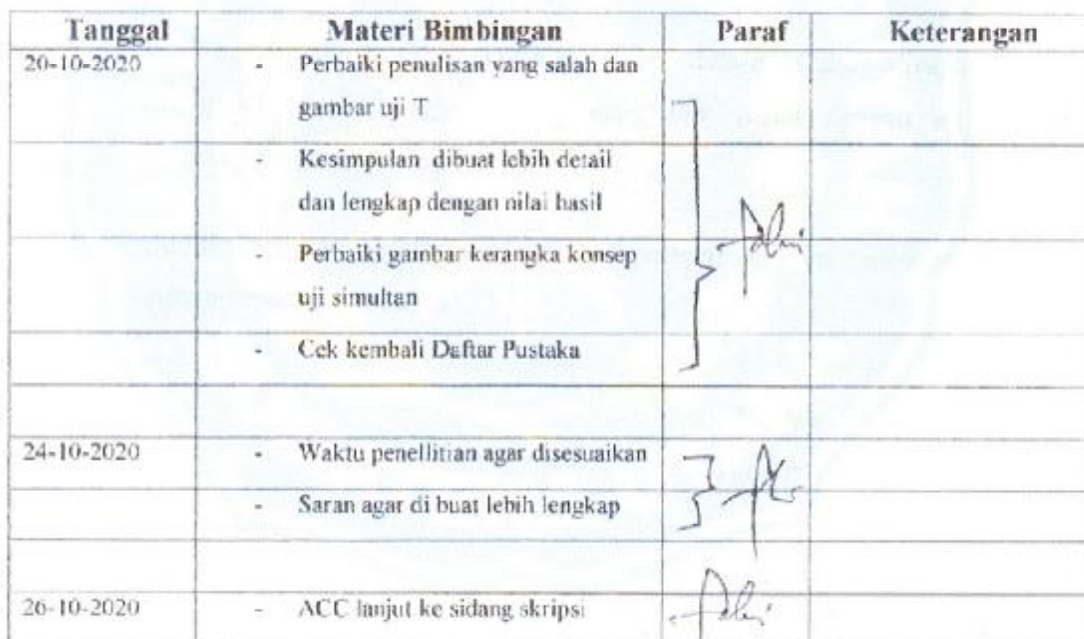 Tanggal Materi Bimbingan Paraf Keterangan
20-10-2020 - Perbaiki penulisan yang salah dan
gambar uji T
- Kesimpulan dibuat lebih detail
dan lengkap dengan nilai hasil
- Perbaiki gambar kerangka konsep
uji simultan
- Cek kembali Daftar Pustaka
24-10-2020 - Waktu penellitian agar disesuaikan
- Saran agar di buat lebih lengkap
26-10-2020 - ACC lanjut ke sidang skripsi